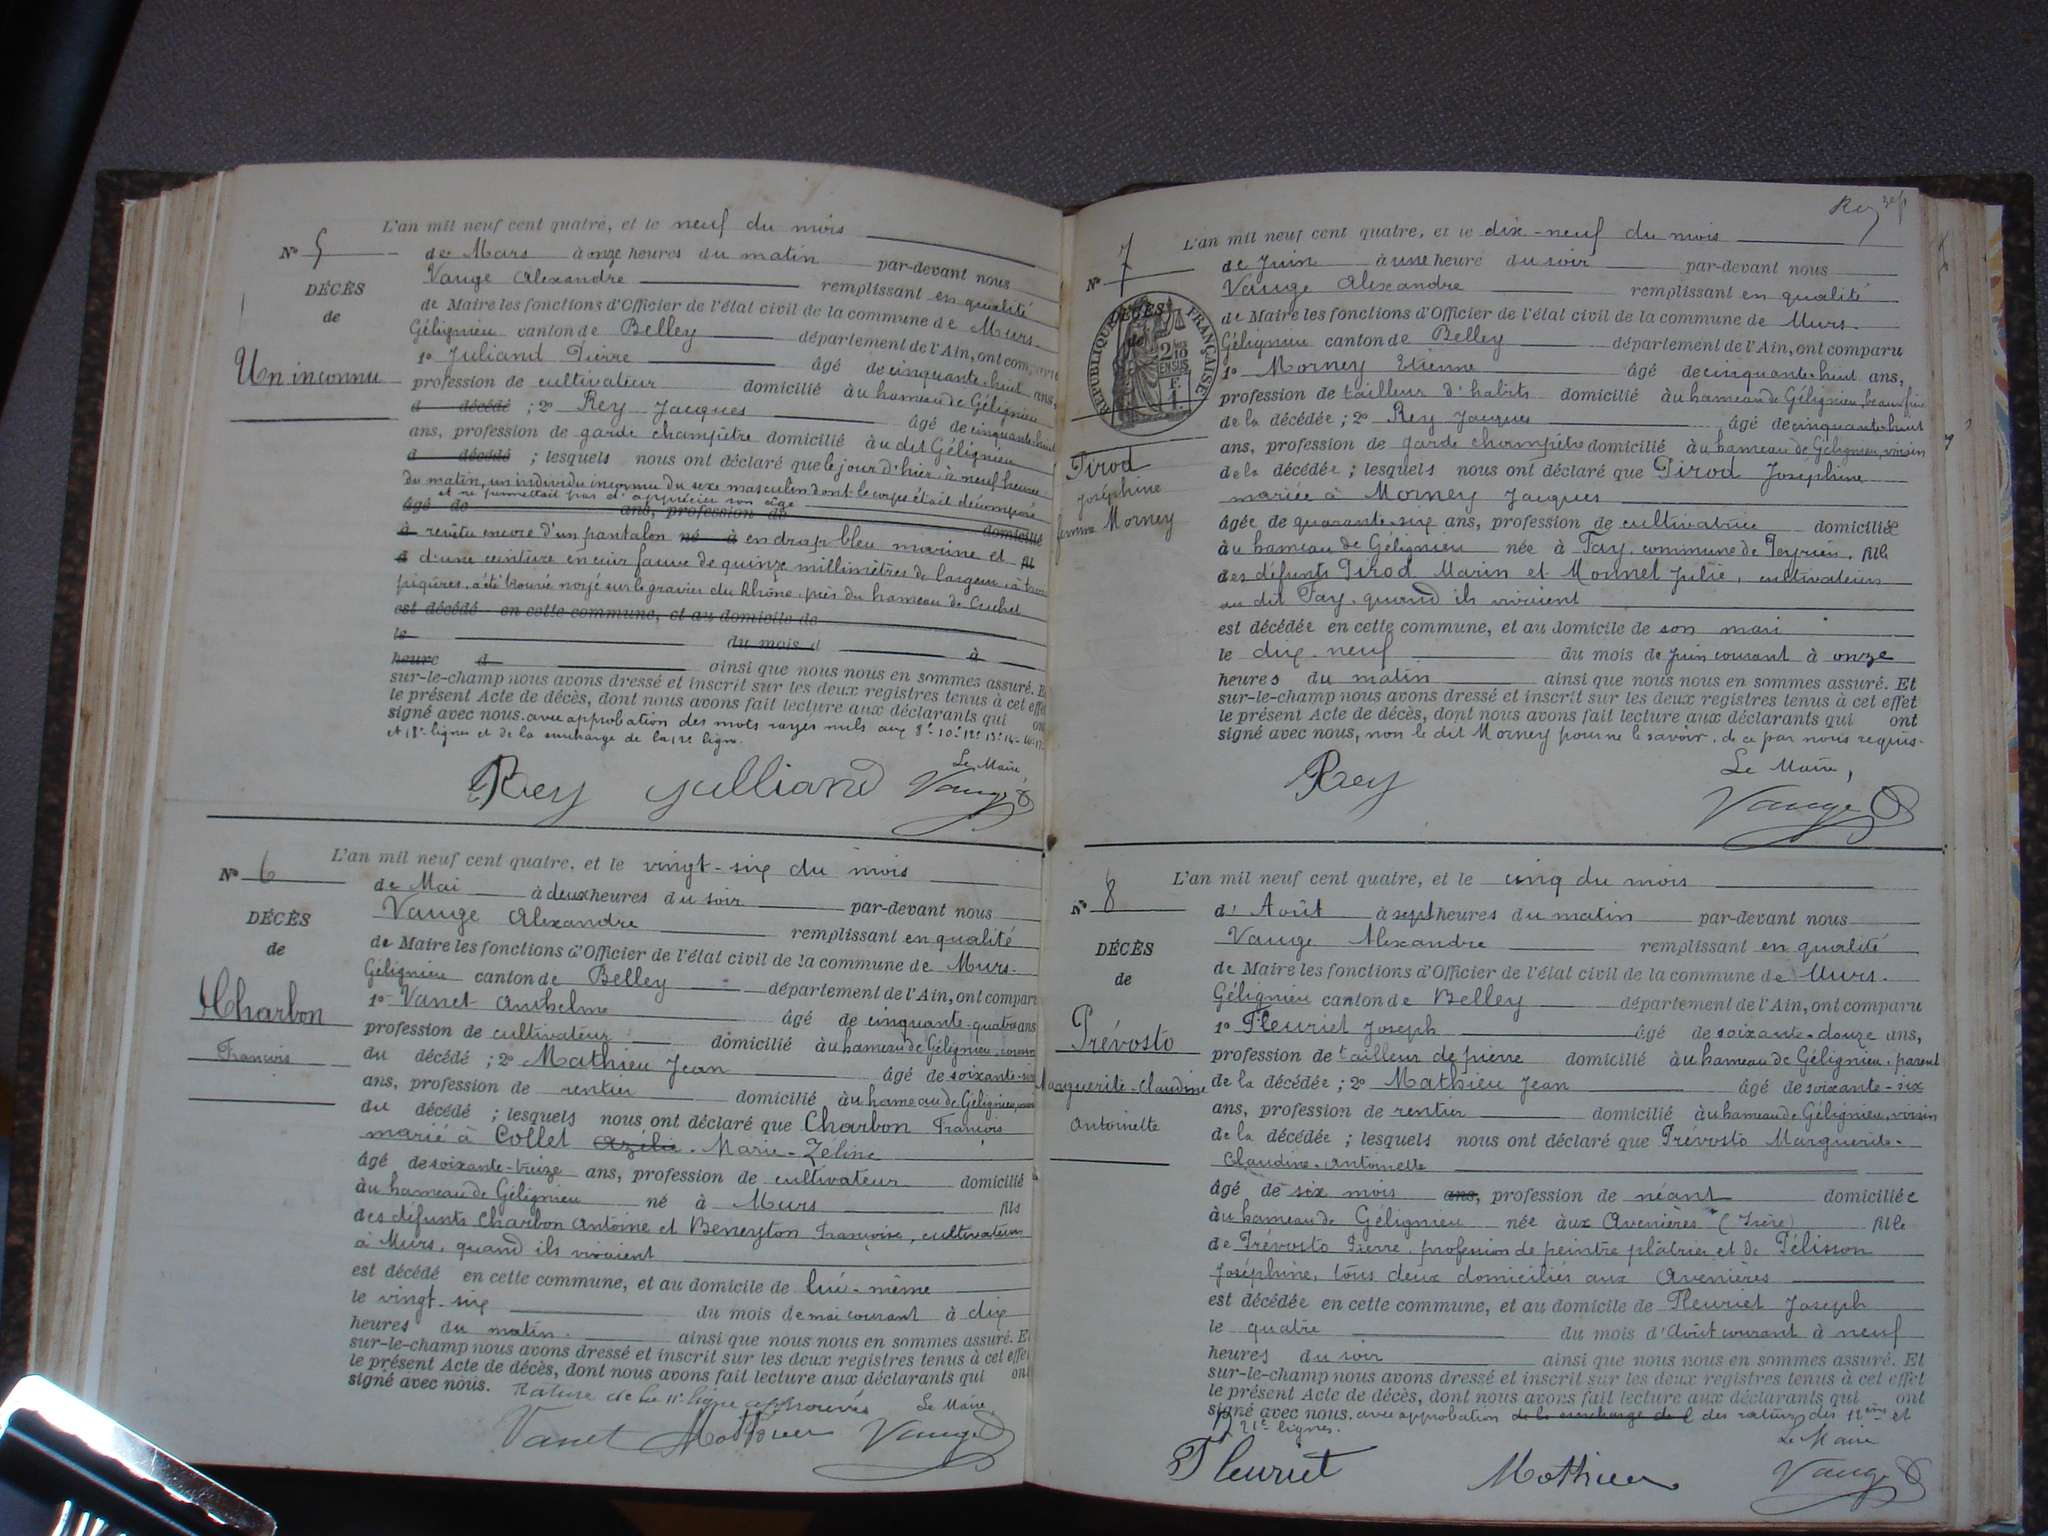 L'an mil neuf cent quatre, et le neuf du mois
N° 5
de Mars à onze heures du matin par-devant nous
DÉCÈS
Vauge Alexandre remplissant en qualité
de
de Maire les fonctions d'Officier de l'état civil de la commune de Murs-
Gélignieu canton de Belley département de l'Ain, ont comparu
Un inconnu
1° Juliand Pierre âgé de cinquante-huit ans,
profession de cultivateur domicilié à u hameau de Gélignieu
d décédé ; 2° Rey Jacques âgé de cinquante-huit
ans, profession de garde champêtre domicilié à u dit Gélignieu
d décédé ; lesquels nous ont déclaré que le jour d'hier à neuf heures
du matin, un individu inconnu du sexe masculin dont le corps était décomposé
et ne permettait pas d'apprécier son âge
âgé de ans, profession de domicilié
à revêtu encore d'un pantalon né à en drap bleu marine et fil
d d'une ceinture en cuir fauve de quinze millimètres de largeur, à trois
piqûres, a été trouvé noyé sur le gravier du Rhône, près du hameau de Cuchet
est décédé en cette commune, et au domicile de
le du mois d à
heure d ainsi que nous nous en sommes assuré. Et
sur-le-champ nous avons dressé et inscrit sur les deux registres tenus à cet effet
le présent Acte de décès, dont nous avons fait lecture aux déclarants qui ont
signé avec nous. avec approbation des mots rayés nuls aux 8e 10e 12e 13e 14e 16e 17e
et 18e lignes et de la surcharge de la 12e ligne.
Le Maire,
Rey Julliand Vauge
L'an mil neuf cent quatre, et le vingt-six du mois
N° 6
de Mai à deux heures du soir par-devant nous
DÉCÈS
Vauge Alexandre remplissant en qualité
de
de Maire les fonctions d'Officier de l'état civil de la commune de Murs-
Gélignieu canton de Belley département de l'Ain, ont comparu
Charbon
1° Vanet Anthelme âgé de cinquante-quatre ans
profession de cultivateur domicilié à u hameau de Gélignieu, cousin
François
du décédé ; 2° Mathieu Jean âgé de soixante-six
ans, profession de rentier domicilié à u hameau de Gélignieu, voisin
du décédé ; lesquels nous ont déclaré que Charbon François
marié à Collet Azélie Marie-Zéline
âgé de soixante-treize ans, profession de cultivateur domicilié
à u hameau de Gélignieu né à Murs fils
des défunts Charbon Antoine et Beneyton Françoise, cultivateurs
à Murs, quand ils vivaient
est décédé en cette commune, et au domicile de lui-même
le vingt-six du mois de mai courant à dix
heures du matin. ainsi que nous nous en sommes assuré. Et
sur-le-champ nous avons dressé et inscrit sur les deux registres tenus à cet effet
le présent Acte de décès, dont nous avons fait lecture aux déclarants qui ont
signé avec nous. Rature de la 11e ligne approuvée Le Maire,
Vanet Mathieu Vauge
Rey
L'an mil neuf cent quatre, et le dix-neuf du mois
N° 7
de Juin à une heure du soir par-devant nous
Vauge Alexandre remplissant en qualité
DÉCÈS
de
REPUBLIQUE FRANÇAISE
2/10 EN SUS
1 F.
de Maire les fonctions d'Officier de l'état civil de la commune de Murs-
Gélignieu canton de Belley département de l'Ain, ont comparu
1° Morney Etienne âgé de cinquante-huit ans,
profession de tailleur d'habits domicilié à u hameau de Gélignieu, beau-frère
de la décédée ; 2° Rey Jacques âgé de cinquante-huit
ans, profession de garde champêtre domicilié à u hameau de Gélignieu, voisin
Pirod
de la décédée ; lesquels nous ont déclaré que Pirod Joséphine
Joséphine
mariée à Morney Jacques
femme Morney
âgée de quarante-six ans, profession de cultivatrice domiciliée
à u hameau de Gélignieu née à Fay, commune de Peyrieu, fille
des défunts Pirod Marin et Monnet Julie, cultivateurs
au dit Fay, quand ils vivaient
est décédée en cette commune, et au domicile de son mari
le dix-neuf du mois de Juin courant à onze
heures du matin ainsi que nous nous en sommes assuré. Et
sur-le-champ nous avons dressé et inscrit sur les deux registres tenus à cet effet
le présent Acte de décès, dont nous avons fait lecture aux déclarants qui ont
signé avec nous, non le dit Morney pour ne le savoir, de ce par nous requis.
Le Maire,
Rey Vauge
L'an mil neuf cent quatre, et le cinq du mois
N° 8
d' Août à sept heures du matin par-devant nous
DÉCÈS
Vauge Alexandre remplissant en qualité
de
de Maire les fonctions d'Officier de l'état civil de la commune de Murs-
Gélignieu canton de Belley département de l'Ain, ont comparu
Prévosto
1° Fleuriet Joseph âgé de soixante-douze ans,
profession de tailleur de pierre domicilié à u hameau de Gélignieu, parent
Marguerite-Claudine
de la décédée ; 2° Mathieu Jean âgé de soixante-six
ans, profession de rentier domicilié à u hameau de Gélignieu, voisin
Antoinette
de la décédée ; lesquels nous ont déclaré que Prévosto Marguerite-
Claudine-Antoinette
âgé de six mois ans, profession de néant domiciliée
à u hameau de Gélignieu née à ux Avenières (Isère) fille
de Prévosto Pierre, profession de peintre plâtrier et de Pélisson
Joséphine, tous deux domiciliés aux Avenières
est décédée en cette commune, et au domicile de Fleuriet Joseph
le quatre du mois d'Août courant à neuf
heures du soir ainsi que nous nous en sommes assuré. Et
sur-le-champ nous avons dressé et inscrit sur les deux registres tenus à cet effet
le présent Acte de décès, dont nous avons fait lecture aux déclarants qui ont
signé avec nous. avec approbation de la surcharge de l des ratures des 12ème et
21e lignes.
Le Maire
Fleuriet Mathieu Vauge